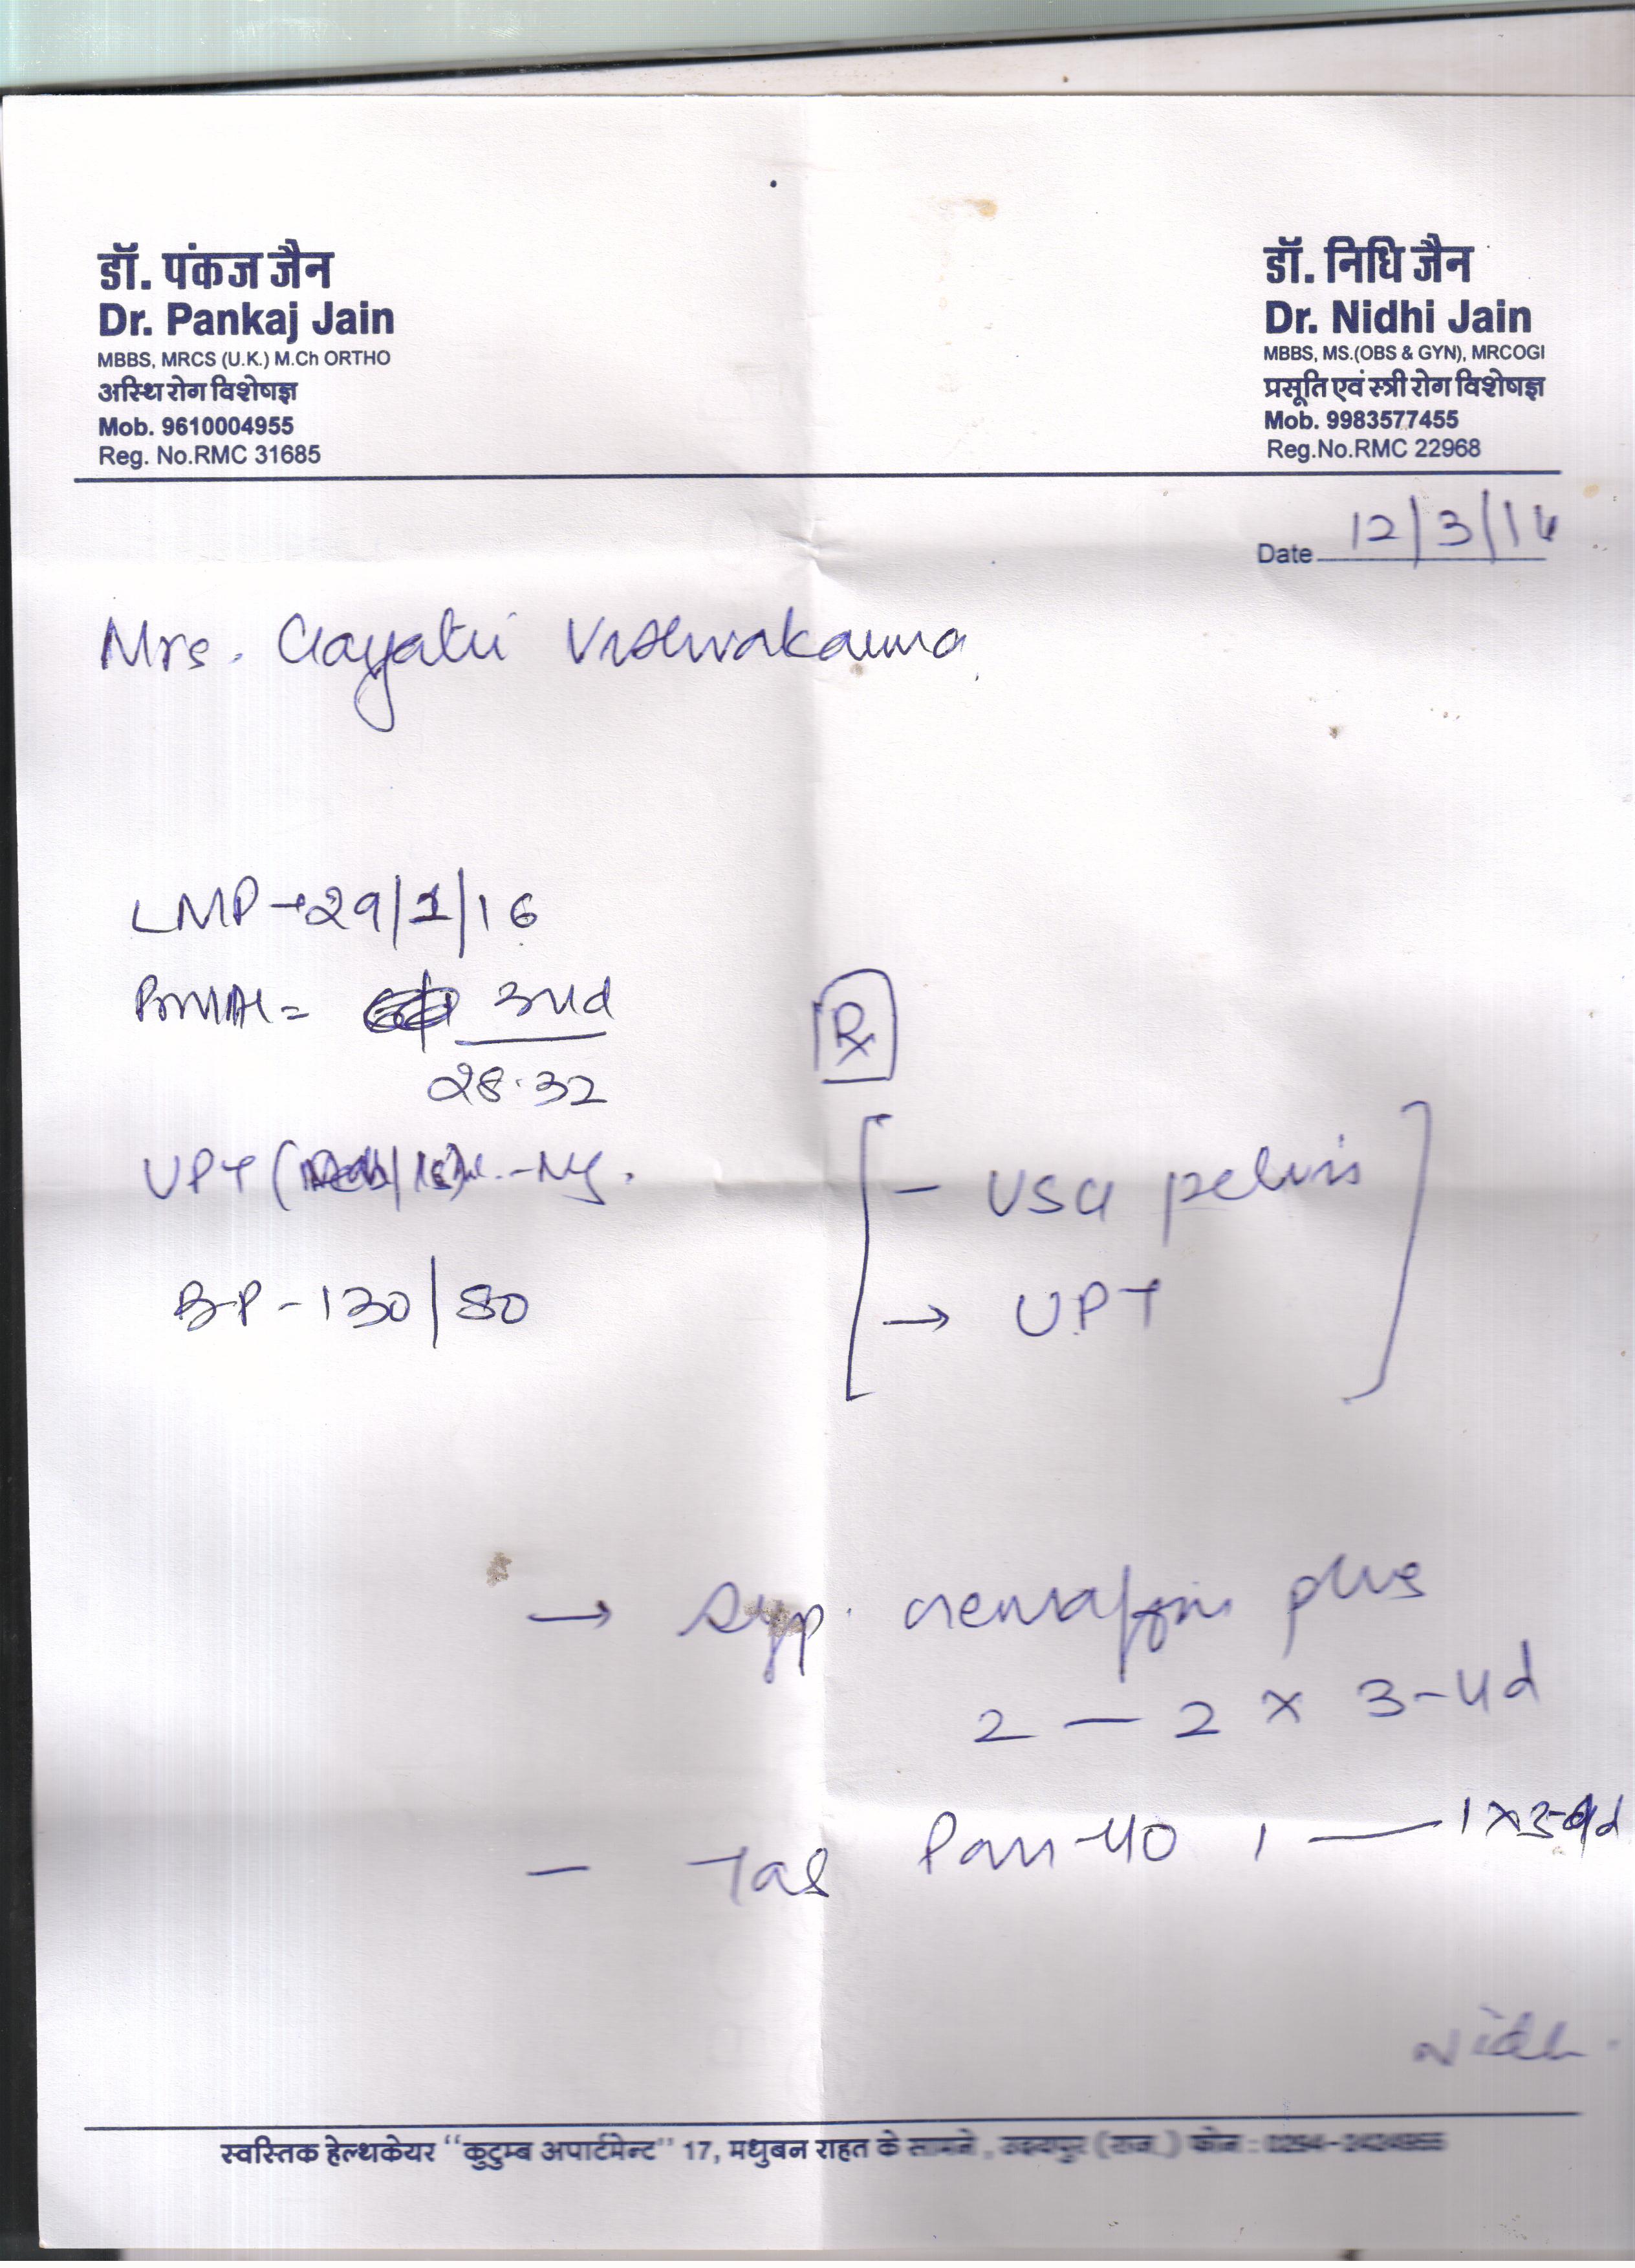 डॉ. पंकज जैन
Dr. Pankaj Jain
MBBS, MRCS (U.K.) M.Ch ORTHO
अस्थि रोग विशेषज्ञ
Mob. 9610004955
Reg. No.RMC 31685
डॉ. निधि जैन
Dr. Nidhi Jain
MBBS, MS.(OBS & GYN), MRCOGI
प्रसूति एवं स्त्री रोग विशेषज्ञ
Mob. 9983577455
Reg.No.RMC 22968
Date 12/3/16
Mrs. Gayatri Vishwakarma
LMP → 29/1/16
28-32
UPT
BP - 130/80
Rx
- USG pelvis
→ UPT
→ Syp. cremaffin plus
2 — 2 x 3-4d
- Tab Pan-40 1 — 1 x 3-4d
Nidhi
स्वस्तिक हेल्थकेयर "कुटुम्ब अपार्टमेन्ट" 17, मधुबन राहत के सामने, उदयपुर (राज.) फोन :